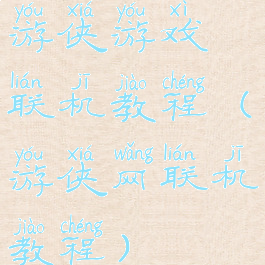 yóu xiá yóu xì
游侠游戏
lián jī jiào chéng
联机教程（
yóu xiá wǎng lián jī
游侠网联机
jiào chéng
教程）